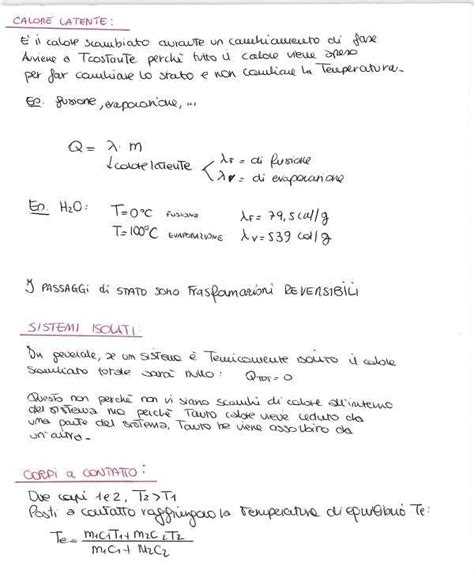 CALORE LATENTE:
È il calore scambiato durante un cambiamento di fase
Avviene a T costante perché tutto il calore viene speso
per far cambiare lo stato e non cambiare la Temperatura.
Es. fusione, evaporazione, ...
Q = λ · m
↓ calore latente < λF = di fusione
λV = di evaporazione
Es. H2O: T = 0°C FUSIONE λF = 79,5 cal/g
T = 100°C EVAPORAZIONE λV = 539 cal/g
I PASSAGGI di STATO sono Trasformazioni REVERSIBILI
SISTEMI ISOLATI:
In generale, se un sistema è Termicamente isolato il calore
scambiato totale sarà nullo: QTOT = 0
Questo non perché non vi siano scambi di calore all'interno
del sistema ma perché Tanto calore viene ceduto da
una parte del sistema, Tanto ne viene assorbito da
un'altra.
CORPI a CONTATTO:
Due corpi 1 e 2, T2 > T1
Posti a contatto raggiungono la Temperatura di equilibrio Te:
Te = m1C1T1 + m2C2T2
m1C1 + M2C2